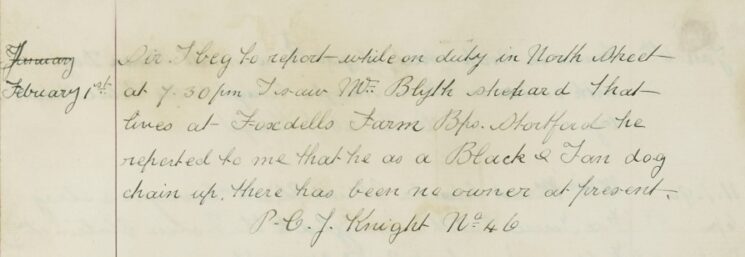 January
February 1st
Sir. I beg to report while on duty in North Street
at 7.30pm I saw Mr. Blyth shephard that
lives at Foxdells Farm Bps. Stortford he
reported to me that he as a Black & Tan dog
chain up. there has been no owner at present.
P.C. J. Knight No 46